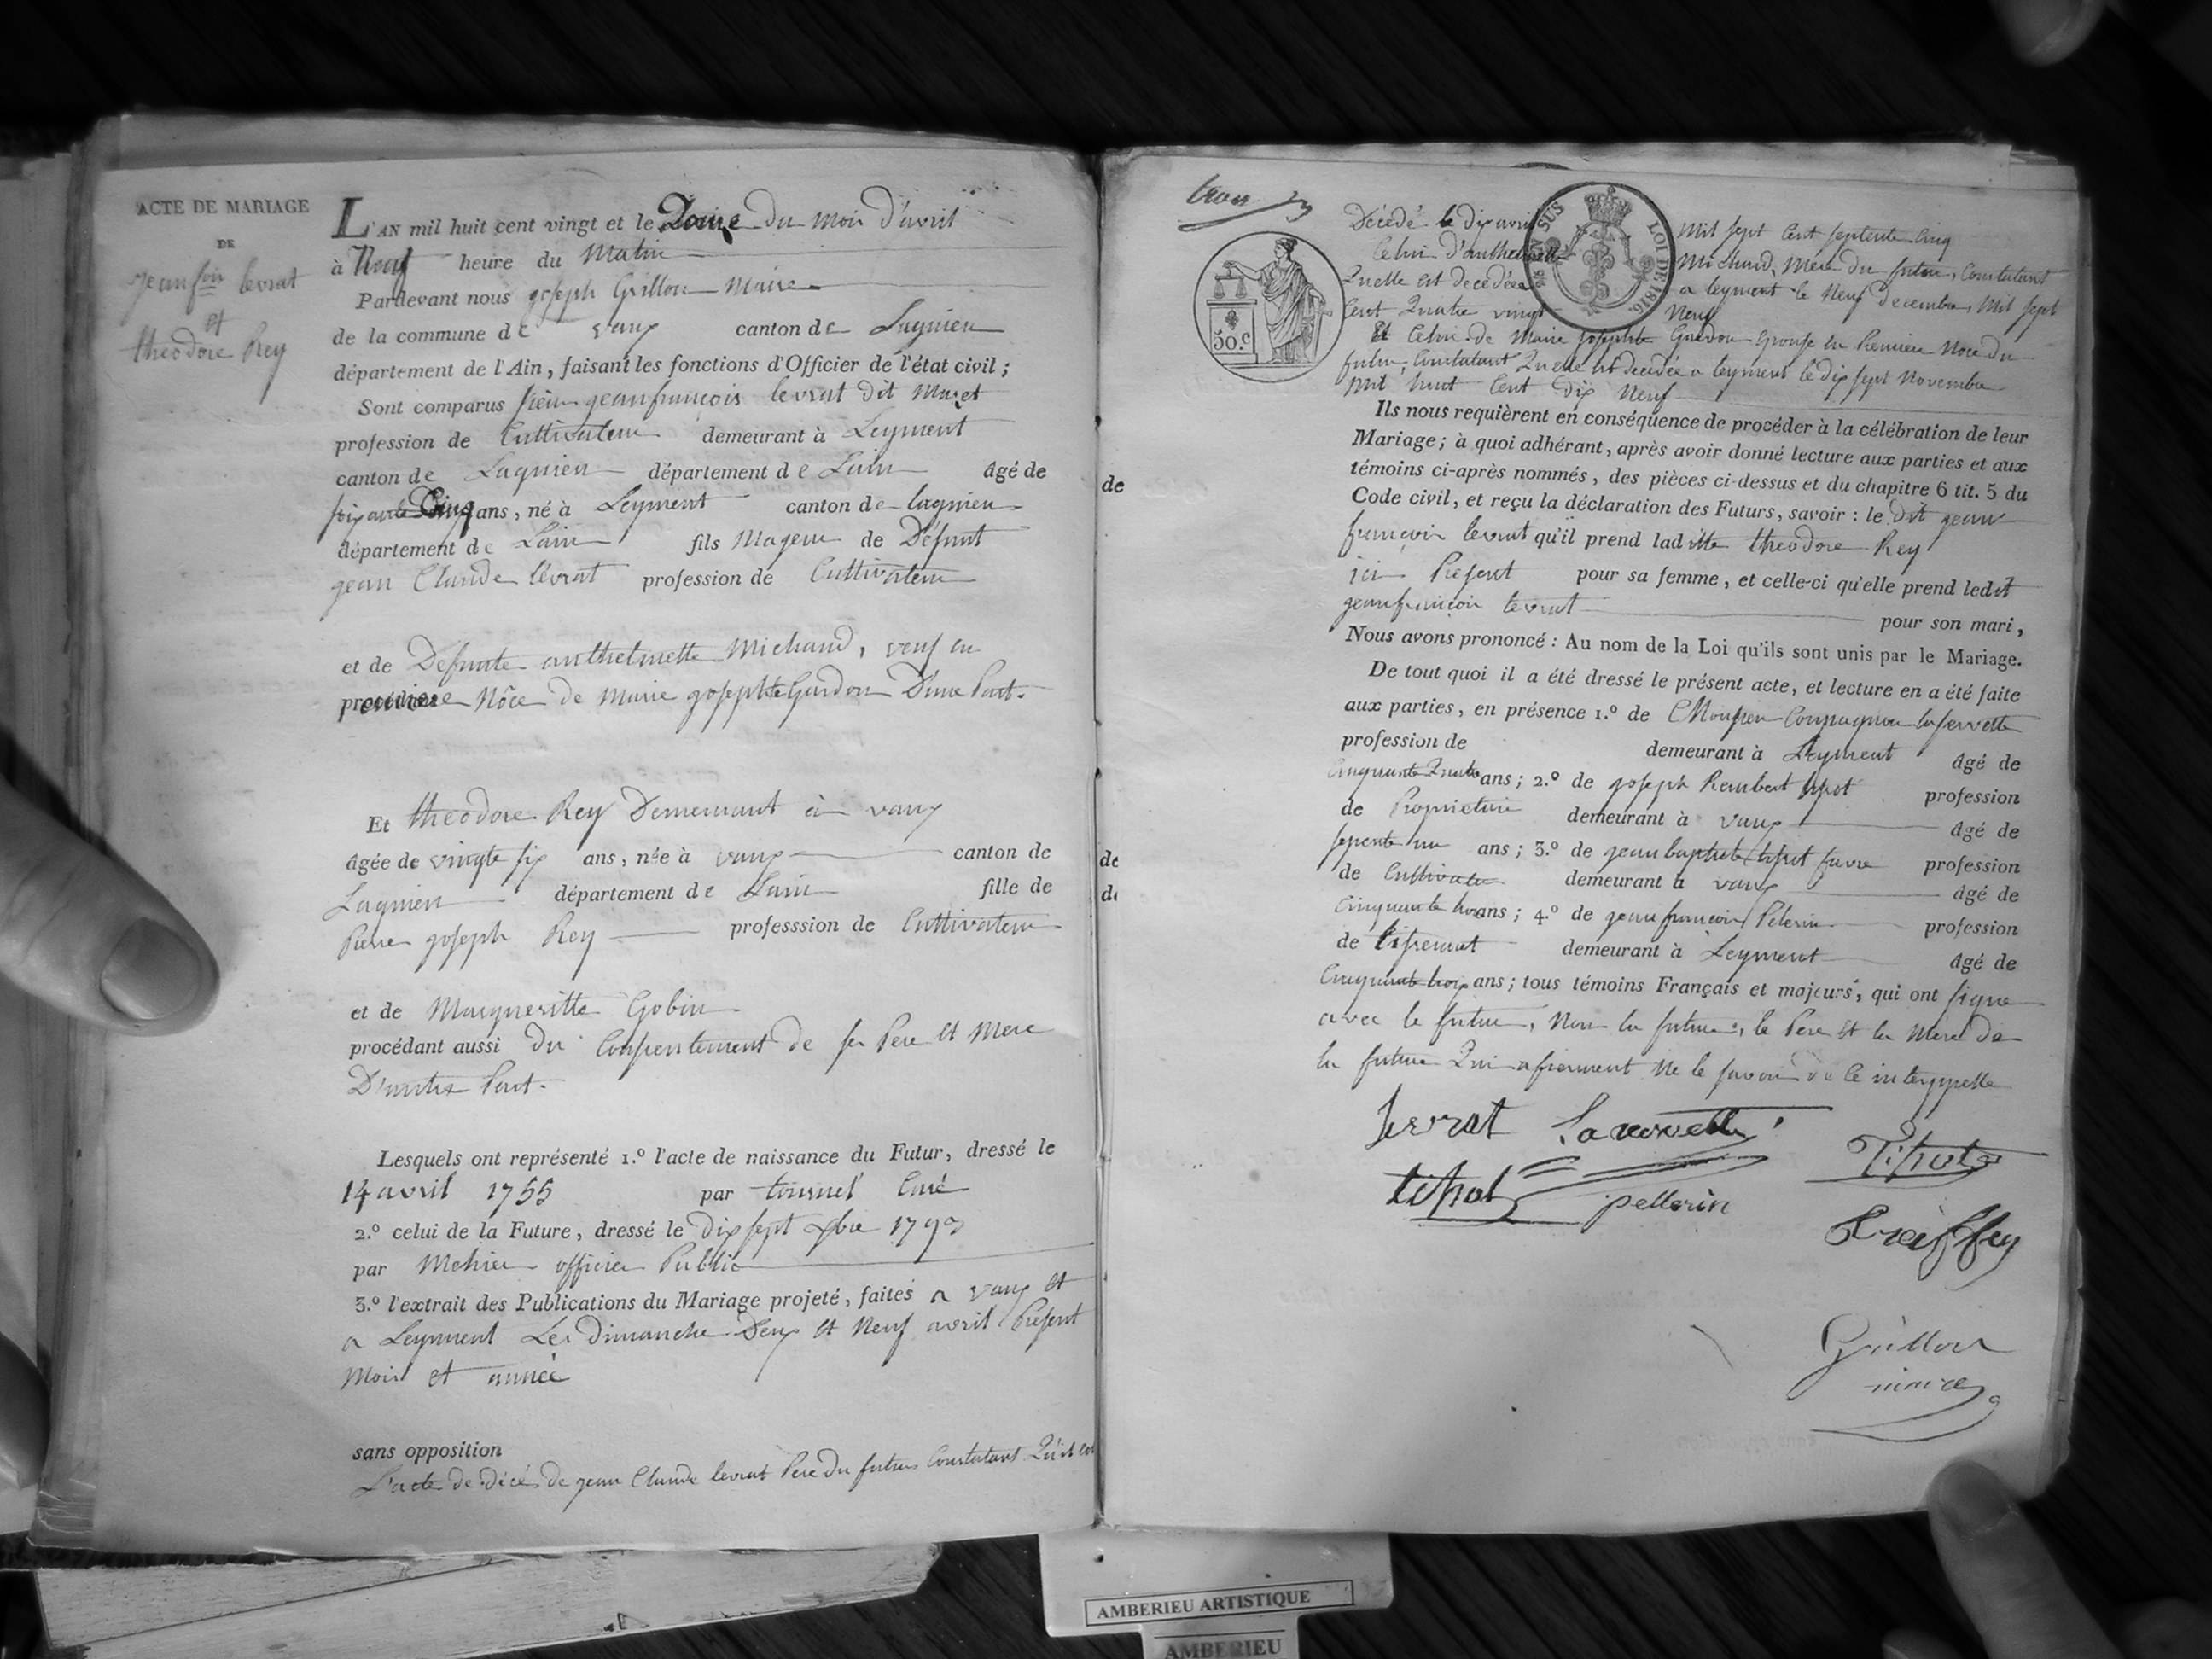 ACTE DE MARIAGE
DE
jean fois levrat
et
théodore Rey
L'AN mil huit cent vingt et le Douze du mois d'avril
à Neuf heure du Matin
Pardevant nous joseph Grillon Maire
de la commune de vaux canton de Lagnieu
département de l'Ain, faisant les fonctions d'Officier de l'état civil;
Sont comparus sieur jean françois levrat dit Maret
profession de Cultivateur demeurant à Leyment
canton de Lagnieu département de Lain âgé de
soixante Cinq ans, né à Leyment canton de lagnieu
département de Lain fils Mageur de Défunt
jean Claude levrat profession de Cultivateur
et de Defunte anthelmette Michaud, veuf en
premiere Nôce de Marie josephte Gardon D'une Part.
Et théodore Rey Demeurant à vaux
âgée de vingte six ans, née à vaux canton de
Lagnieu département de Lain fille de
Pierre joseph Rey professsion de Cultivateur
et de Margueritte Gobin
procédant aussi du Consentement de ses Pere et Mere
D'autre Part.
Lesquels ont représenté 1.º l'acte de naissance du Futur, dressé le
14 avril 1755 par tournel Curé
2.º celui de la Future, dressé le dix sept xbre 1793
par Mehier officier Public
3.º l'extrait des Publications du Mariage projeté, faites a vaux et
a Leyment Les dimanche Deux et Neuf avril Présent
Mois et année
sans opposition
L'acte de décé de jean Claude levrat Pere du futur Constatant Qu'il est
de
de
30.c
EN SUS
LOI DE 1816.
Décédé le dix avril Mil sept Cent septente Cinq
Celui d'anthelmette Michaud, Mere du futur, Constatant
Quelle est decedée a leyment le Neuf decembre, Mil sept
Cent Quatre vingt Neuf
Et Celui de Marie josephte Gardon Epouse en Premiere Noce du
futur, Constatant Quelle est decedée a leyment le dix sept Novembre
Mil huit Cent dix Neuf
Ils nous requièrent en conséquence de procéder à la célébration de leur
Mariage; à quoi adhérant, après avoir donné lecture aux parties et aux
témoins ci-après nommés, des pièces ci-dessus et du chapitre 6 tit. 5 du
Code civil, et reçu la déclaration des Futurs, savoir : le dit jean
françois levrat qu'il prend laditte théodore Rey
ici Present pour sa femme, et celle-ci qu'elle prend ledit
jean françois levrat pour son mari,
Nous avons prononcé : Au nom de la Loi qu'ils sont unis par le Mariage.
De tout quoi il a été dressé le présent acte, et lecture en a été faite
aux parties, en présence 1.º de Monsieur Compagnon laservette
profession de demeurant à Leyment âgé de
cinquante Quatre ans; 2.º de joseph Rambert tipot profession
de Proprietaire demeurant à vaux âgé de
septente un ans; 3.º de jean baptiste tipot favre profession
de Cultivateur demeurant à vaux âgé de
cinquante trois ans; 4.º de jean françois Pelerin profession
de tisserant demeurant à Leyment âgé de
Cinquante trois ans; tous témoins Français et majeurs, qui ont signe
avec le futur, Non la future, le Pere et la Mere de
la future Qui afirement Ne le savoir de Ce intergepelle
levrat Laservette
Tipot
tipot pellerin
Greiffey
Grillon
maire
AMBERIEU ARTISTIQUE
AMBERIEU